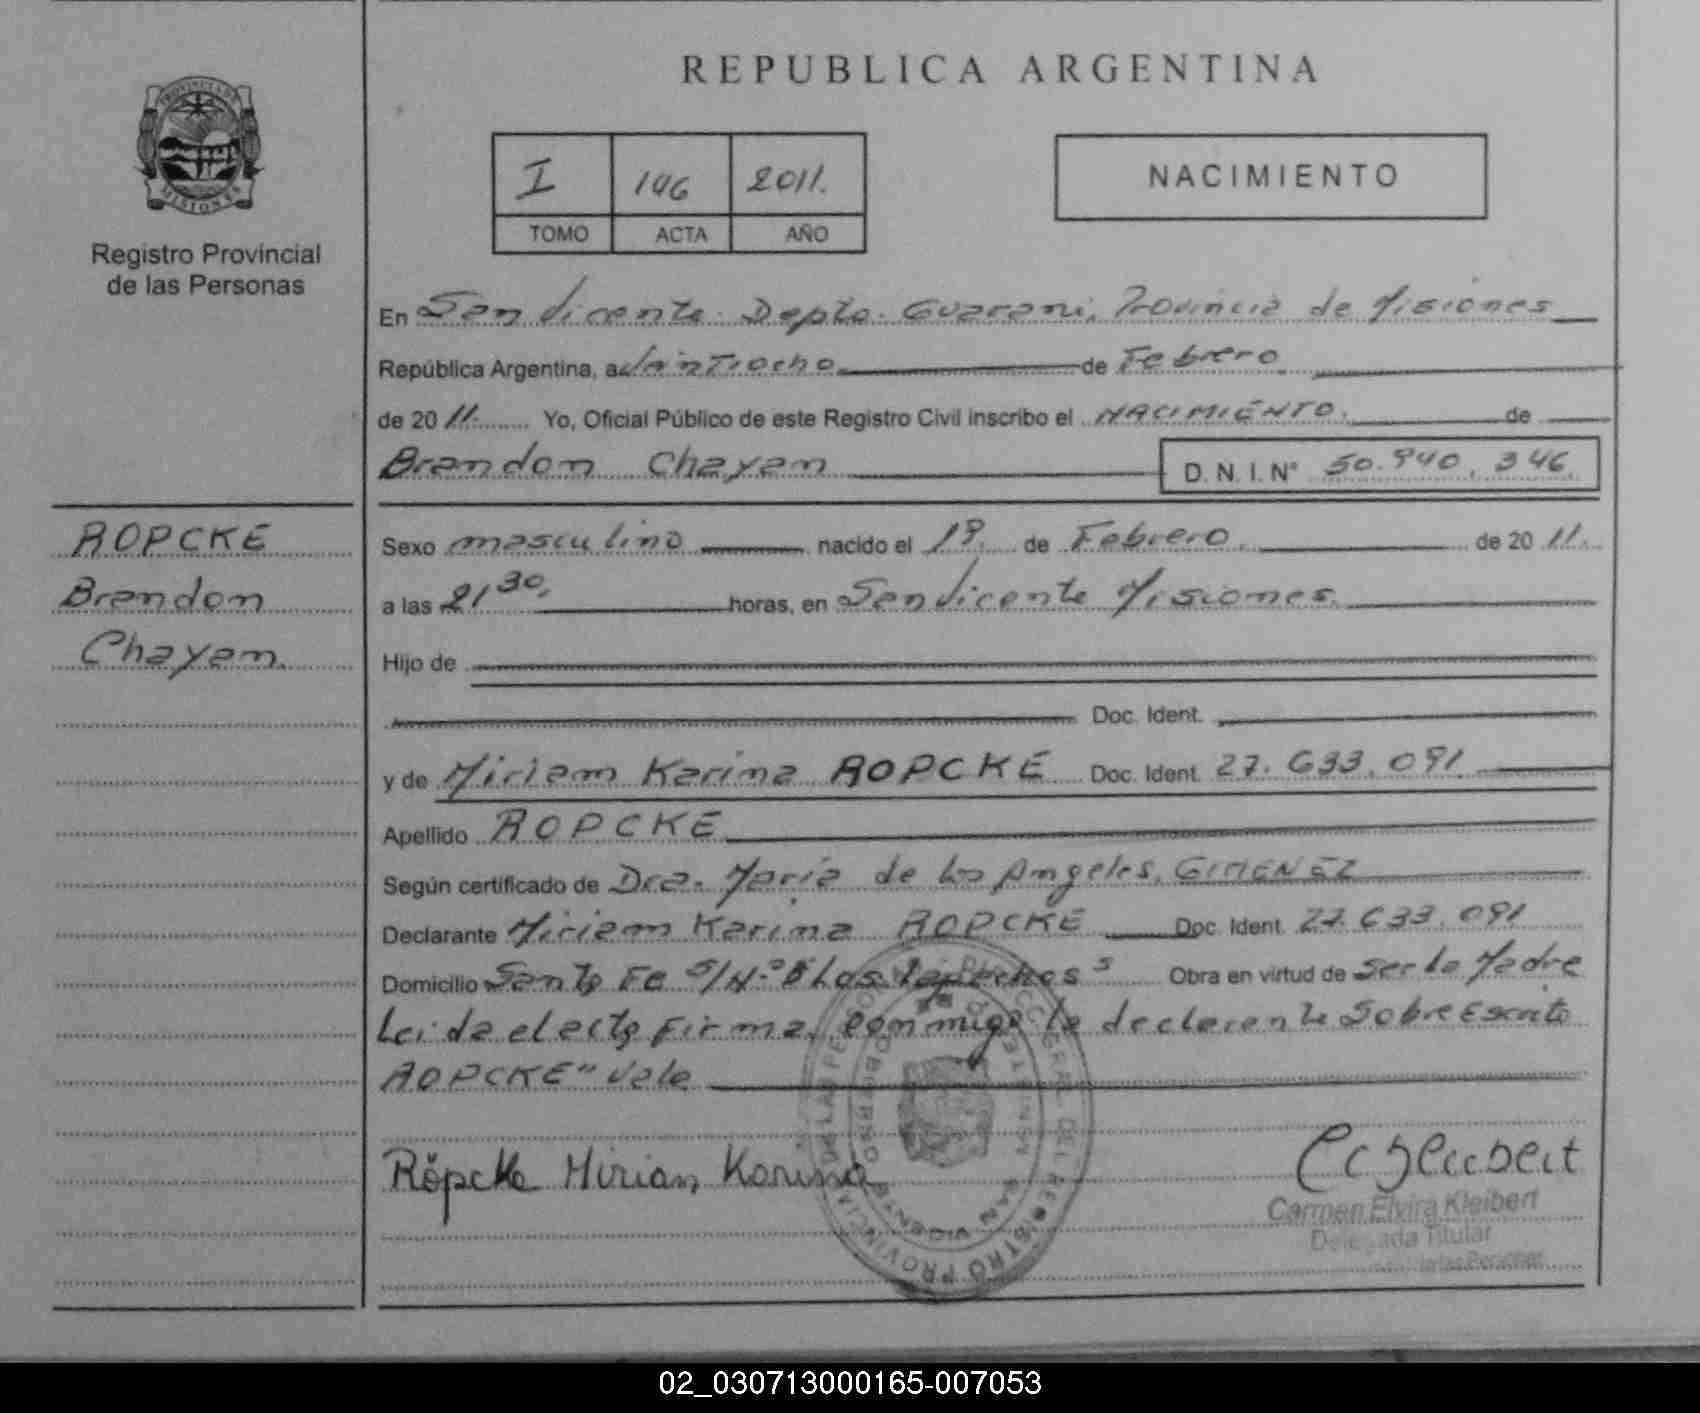 REPUBLICA ARGENTINA
PROVINCIA DE
MISIONES
Registro Provincial
de las Personas
I 146 2011.
TOMO ACTA AÑO
NACIMIENTO
En San Vicente Depto. Guarani, Provincia de Misiones
República Argentina, a Vaintiocho de Febrero
de 2011. Yo, Oficial Público de este Registro Civil inscribo el NACIMIENTO. de
Brandon Chayan D. N. I. N° 50.940.346.
ROPCKE
Brandon
Chayan
Sexo masculino nacido el 19. de Febrero. de 2011.
a las 21 30, horas, en San Vicente Misiones.
Hijo de
Doc. Ident.
y de Miriam Karina ROPCKE Doc. Ident. 27.633.091
Apellido ROPCKE
Según certificado de Dra. María de los Angeles, GIMENEZ
Declarante Miriam Karina ROPCKE Doc. Ident. 27.633.091
Domicilio Santa Fe S/N° B° Los Obra en virtud de ser la Madre
Leida el acta firma, conmigo la declarante Sobre Escrito
ROPCKE" Vale
Röpcke Mirian Karina
Carmen Elvira Kleibert
Delegada Titular
de las Personas
02_030713000165-007053